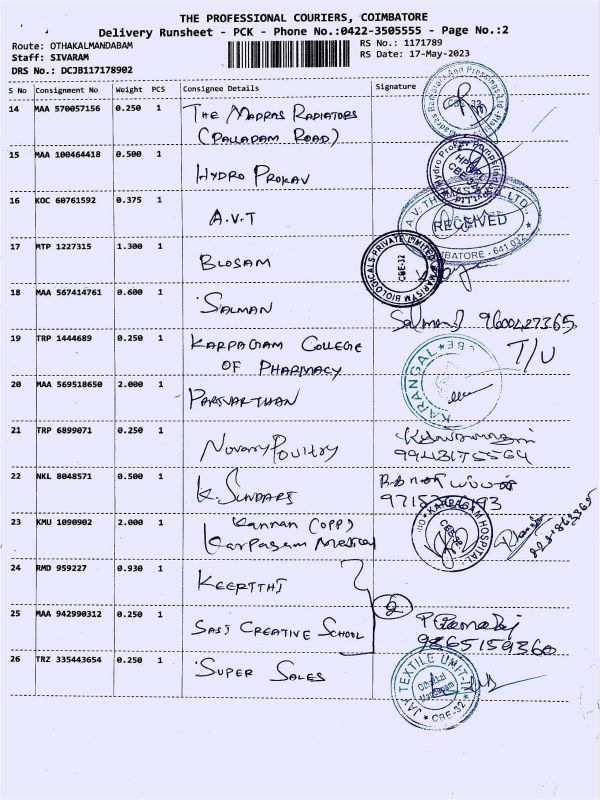 THE PROFESSIONAL COURIERS, COIMBATORE
Delivery Runsheet - PCK - Phone No.:0422-3505555 - Page No.:2
Route: OTHAKALMANDABAM
RS No.: 1171789
Staff: SIVARAM
RS Date: 17-May-2023
DRS No.: DCJB117178902
S No Consignment No Weight PCS Consignee Details Signature
14 MAA 570057156 0.250 1 THE MADRAS RADIATORS
(PALLADAM ROAD)
15 MAA 100464418 0.500 1 HYDRO PROKAV
16 KOC 60761592 0.375 1 A.V.T
RECEIVED
17 MTP 1227315 1.300 1 BLOSAM
CBE-32
18 MAA 567414761 0.600 1 SALMAN
9600427365
19 TRP 1444689 0.250 1 KARPAGAM COLLEGE
OF PHARMACY
T/U
20 MAA 569518650 2.000 1
KARANGAL CBE
21 TRP 6899071 0.250 1 Novary Poultry
9943175564
22 NKL 8048571 0.500 1 K. SUNDARI
23 KMU 1090902 2.000 1 Kannan (OPP)
Karpagam Medical
KARPAGAM HOSPITAL
24 RMD 959227 0.930 1 KEERTTHI
2
25 MAA 942990312 0.250 1 SASI CREATIVE SCHOOL
9865159360
26 TRZ 335443654 0.250 1 SUPER SALES
JAY TEXTILE UNIT-II
CBE-32